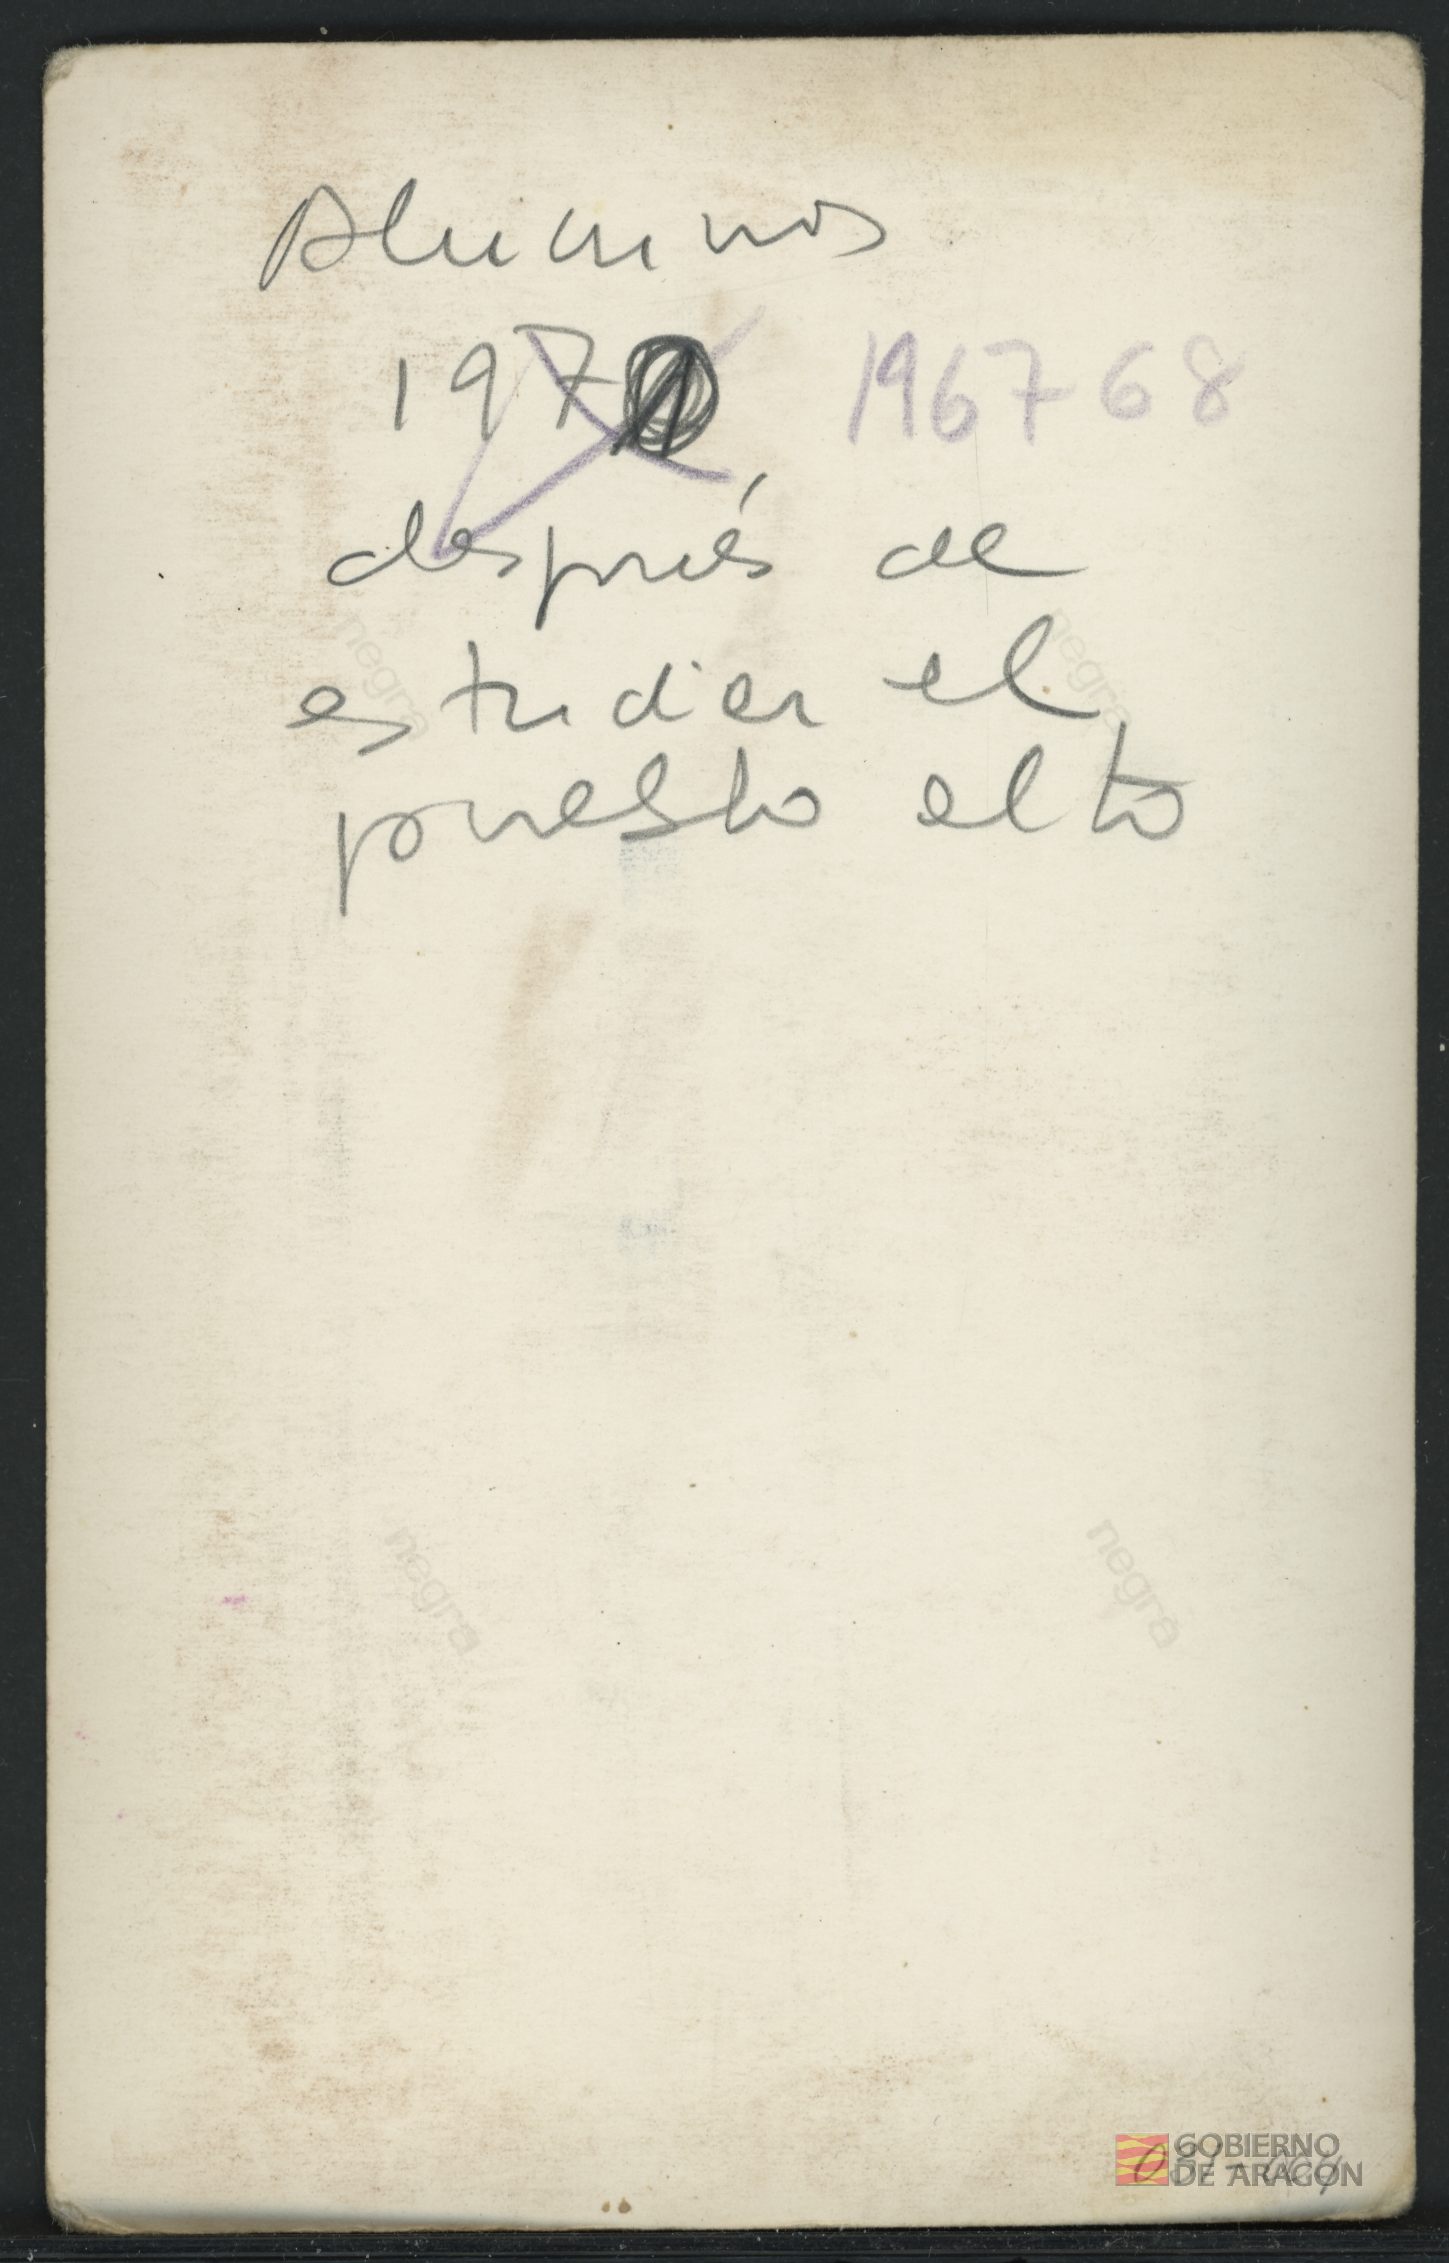 Alumnos
197 1967 68
después de
estudiar el
puesto alto
negra negra
negra negra
GOBIERNO
DE ARAGON